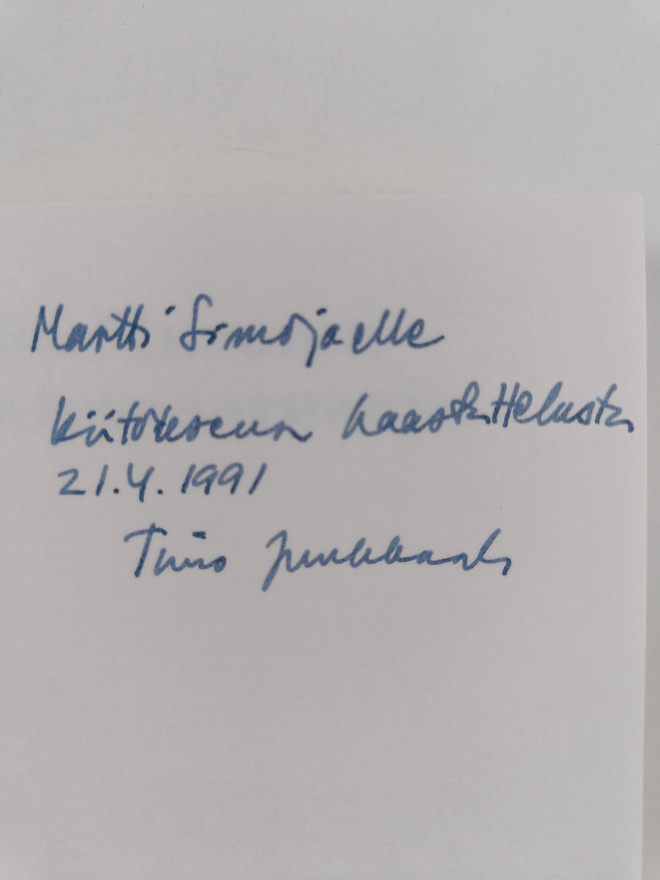 Martti Simojoelle
kiitoksena haastattelusta
21.4.1991
Timo Junkkaala